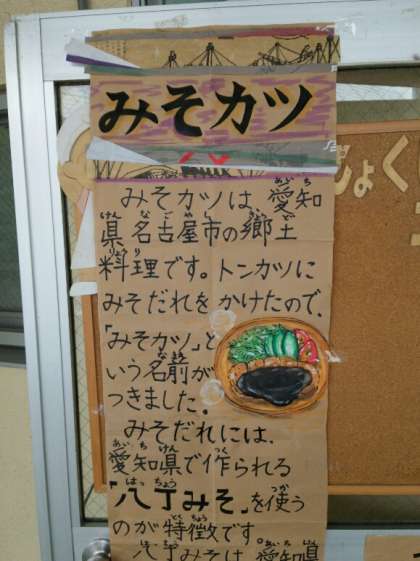 みそカツ
みそカツは、愛知
県名古屋市の郷土
料理です。トンカツに
みそだれをかけたので、
「みそカツ」と
いう名前が
つきました。
みそだれには、
愛知県で作られる
「八丁みそ」を使う
のが特徴です。
八丁みそは、愛知県